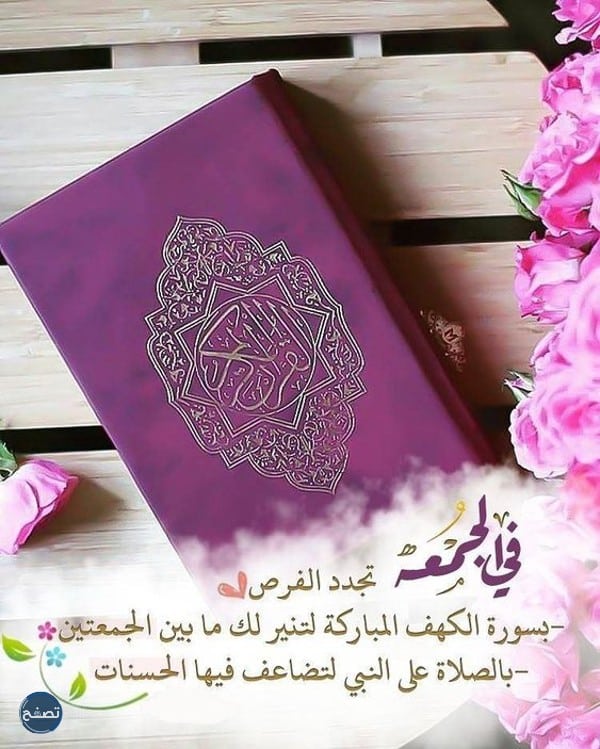 القرآن الكريم
في الجمعه تجدد الفرص
-بسورة الكهف المباركة لتنير لك ما بين الجمعتين
-بالصلاة على النبي لتضاعف فيها الحسنات
تصفح